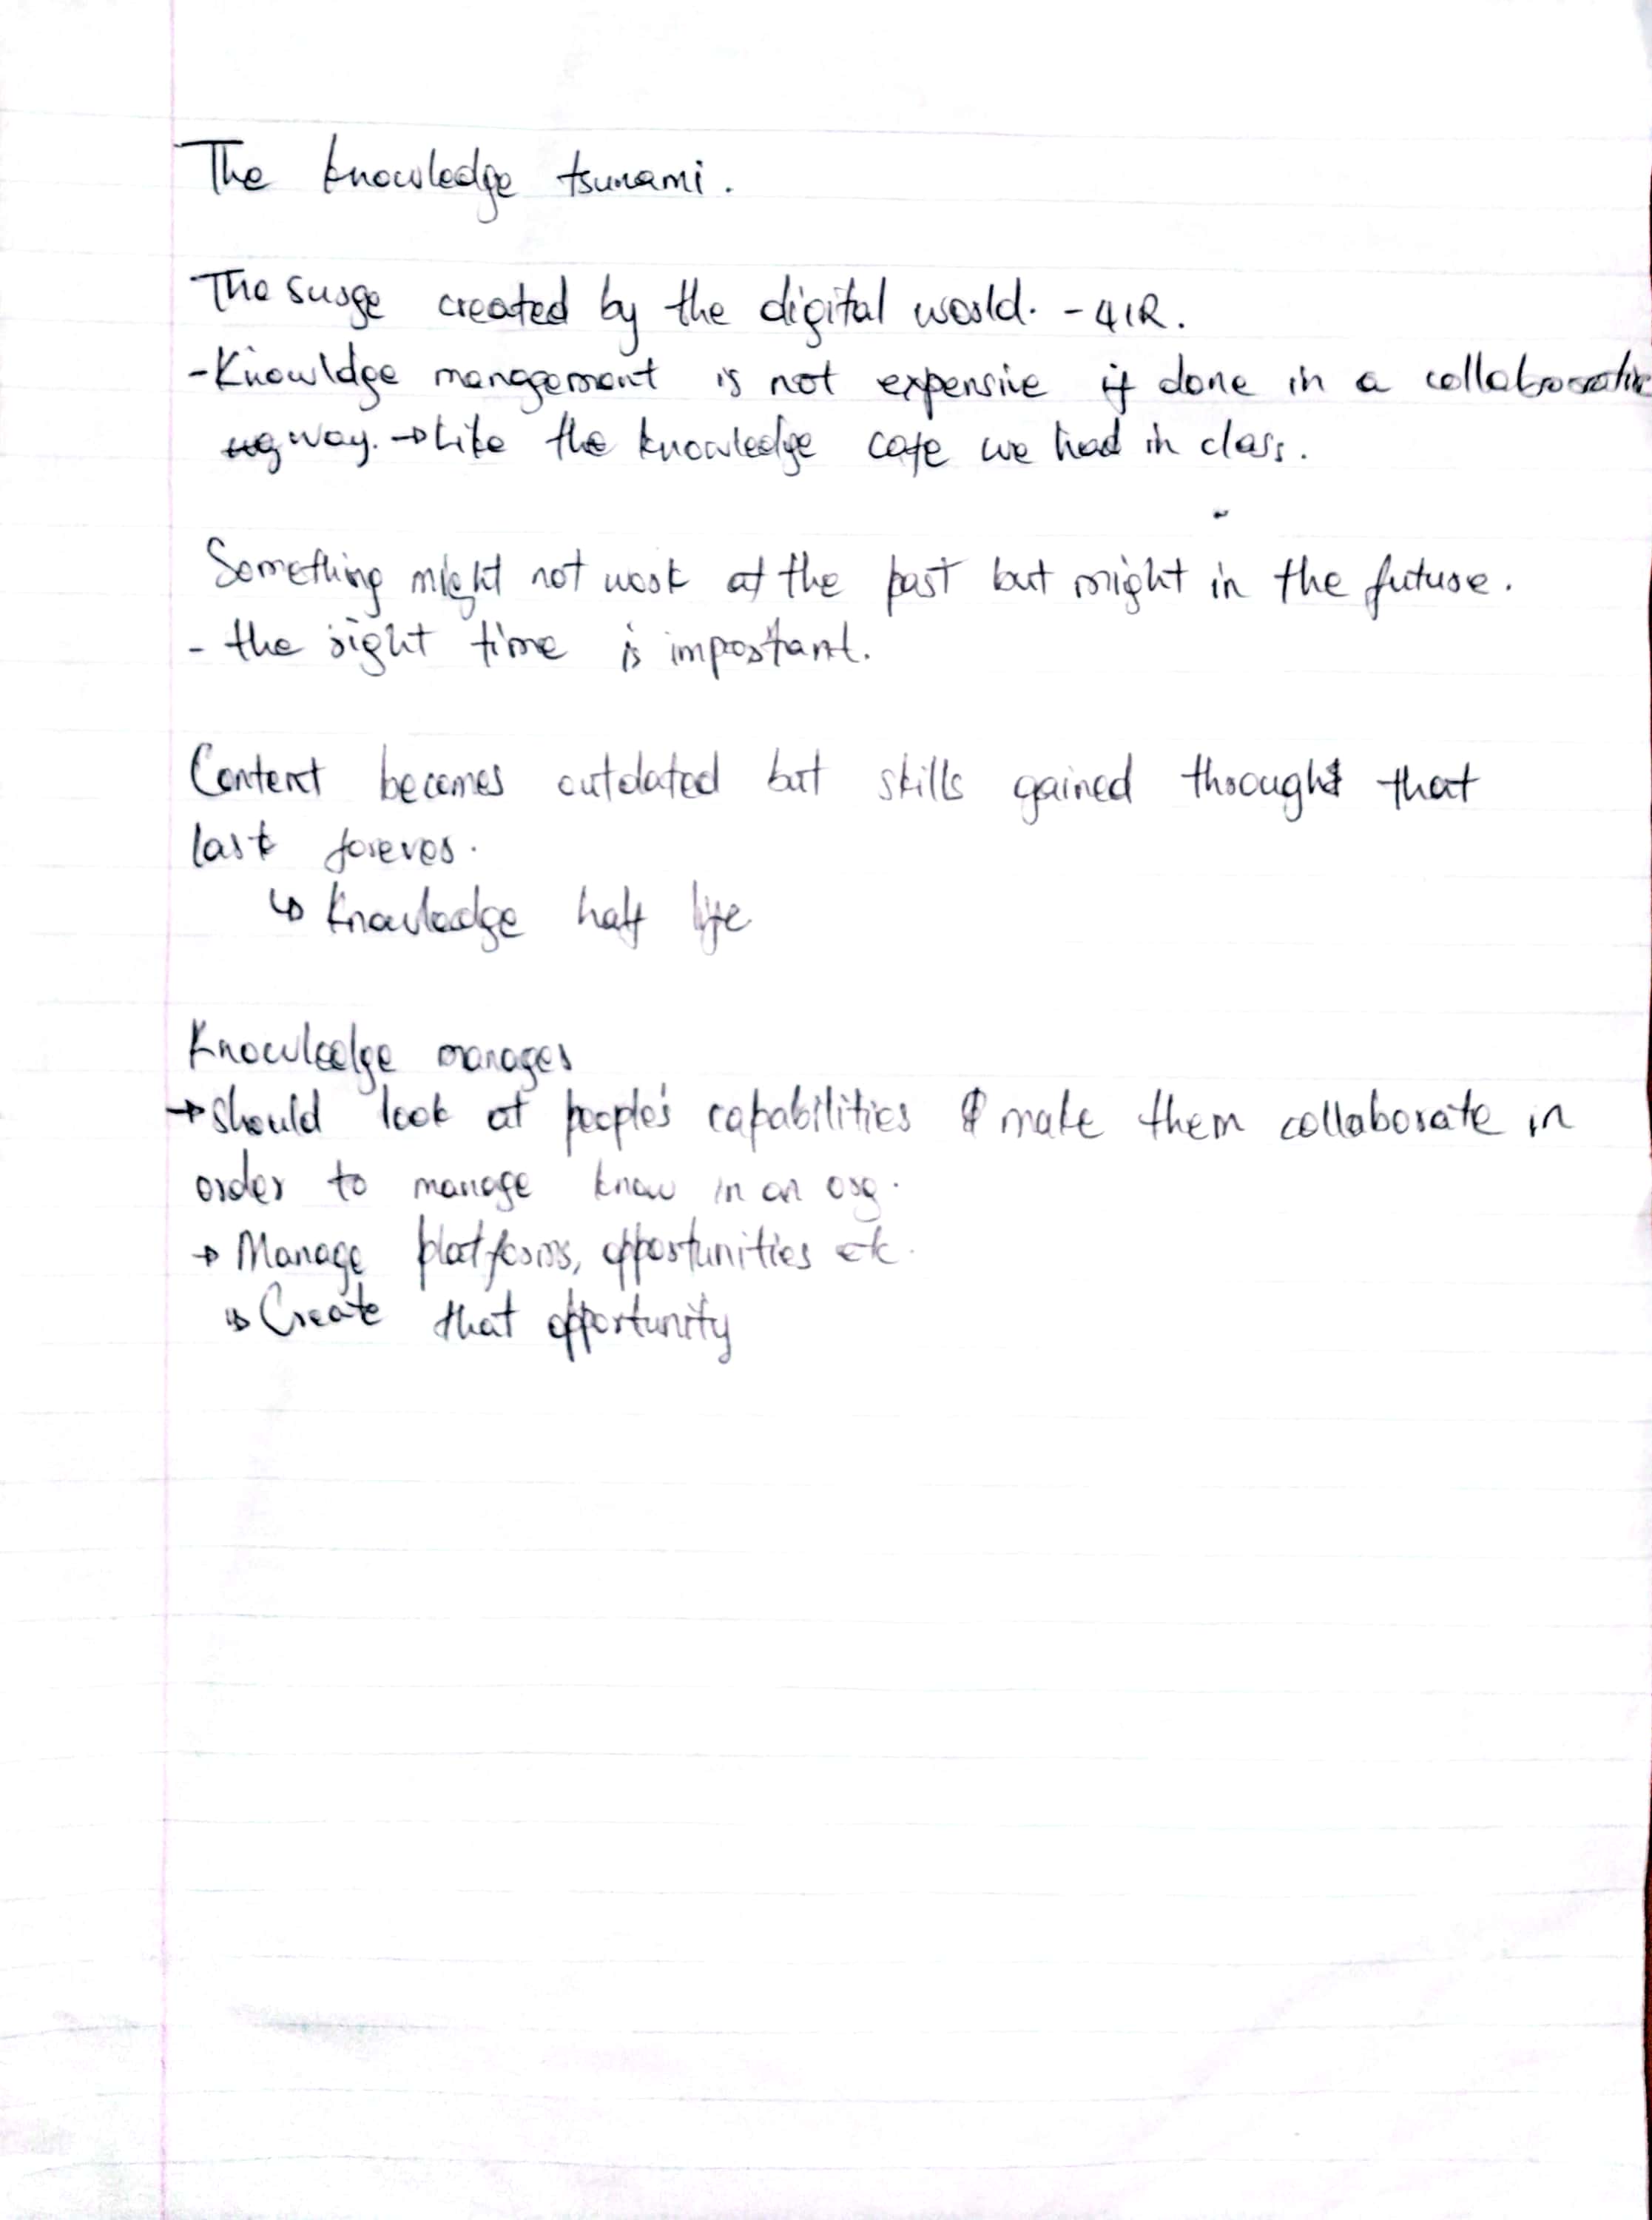 The knowledge tsunami.
The surge created by the digital world. - 4IR.
- Knowldge management is not expensive if done in a collaborative
way. → Like the knowledge cafe we had in class.
Something might not work at the past but might in the future.
- the right time is important.
Content becomes outdated but skills gained through that
last forever.
↳ Knowledge half life
Knowledge manager
→ should look at people's capabilities & make them collaborate in
order to manage know in an org.
→ Manage platforms, opportunities etc.
↳ Create that opportunity